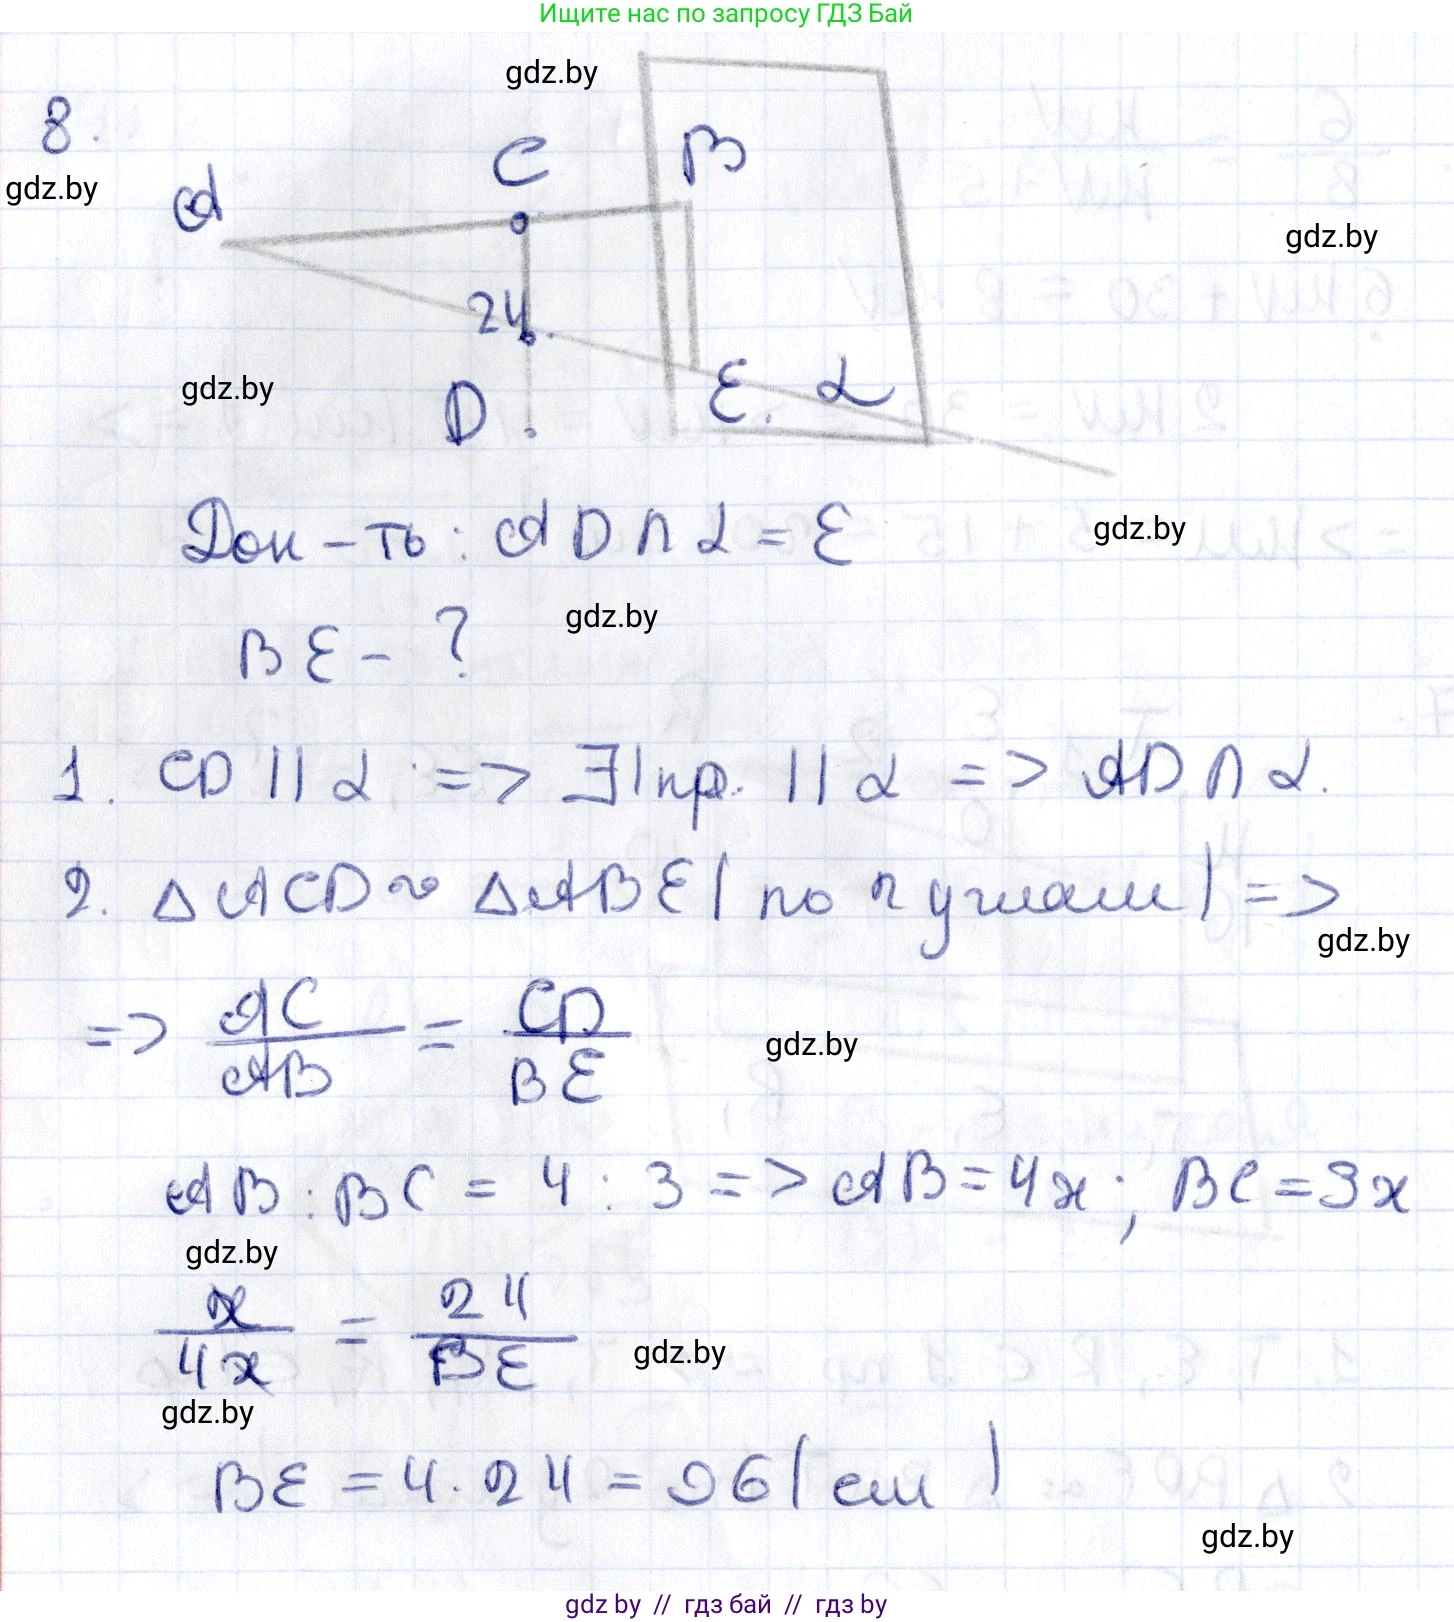 Ищите нас по запросу ГДЗ Бай
gdz.by
8.
C
B
gdz.by
A
gdz.by
24
gdz.by
D
E. α
Док-ть: AD ∩ α = E
gdz.by
BE - ?
gdz.by
1. CD || α => ∃! пр. || α => AD ∩ α.
2. △ACD ~ △ABE (по 2 углам) =>
gdz.by
=> AC/AB = CD/BE
gdz.by
AB : BC = 4 : 3 => AB = 4x; BC = 3x
gdz.by
x/4x = 24/BE
gdz.by
gdz.by
BE = 4 · 24 = 96 (см)
gdz.by
gdz by // гдз бай // гдз by